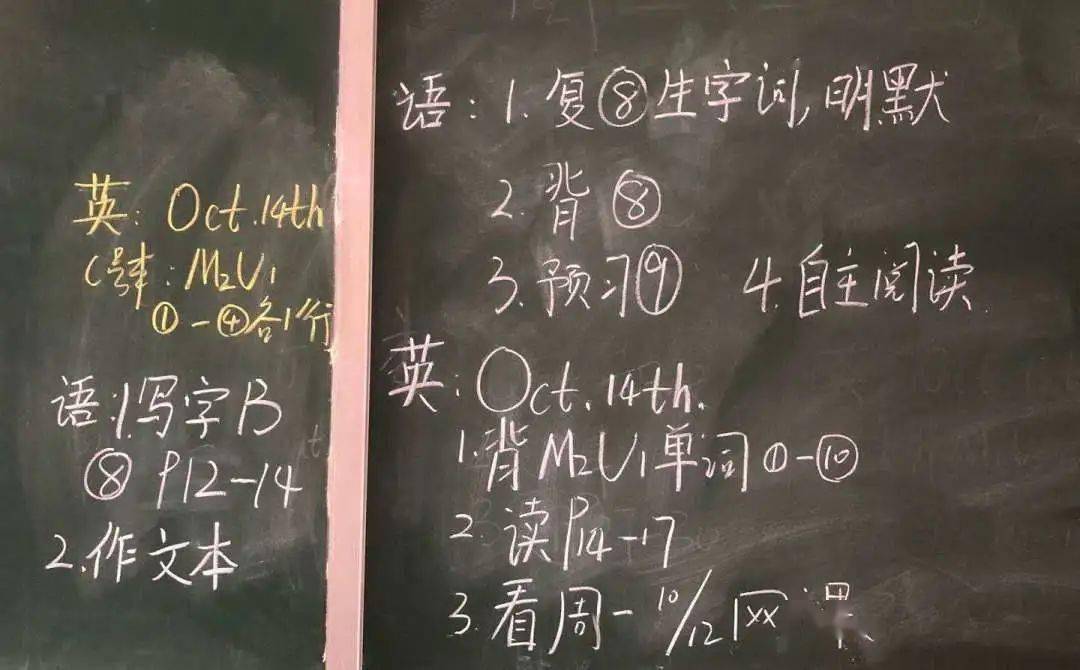 英: Oct.14th
C号本: M2U1
①-④各1行
语:1.写字B
⑧ P12-14
2.作文本
语: 1.复⑧生字词,明默
2.背⑧
3.预习⑨ 4.自主阅读
英: Oct.14th.
1.背M2U1单词①-⑩
2.读P14-17
3.看周一 10/12 网课